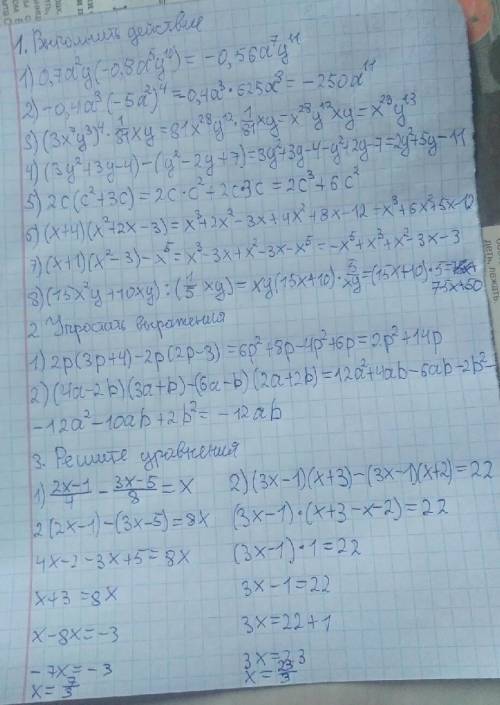 1. Выполнить действие
1) 0,7a²y(-0,8a⁵y¹⁰) = -0,56a⁷y¹¹
2) -0,4a³(-5a²)⁴ = -0,4a³·625a⁸ = -250a¹¹
3) (3x⁷y³)⁴·1/81xy = 81x²⁸y¹²·1/81xy = x²⁸y¹²xy = x²⁹y¹³
4) (3y²+3y-4)-(y²-2y+7) = 3y²+3y-4-y²+2y-7 = 2y²+5y-11
5) 2c(c²+3c) = 2c·c²+2c·3c = 2c³+6c²
6) (x+4)(x²+2x-3) = x³+2x²-3x+4x²+8x-12 = x³+6x²+5x-12
7) (x+1)(x²-3)-x⁵ = x³-3x+x²-3x-x⁵ = -x⁵+x³+x²-3x-3
8) (15x²y+10xy):(1/5xy) = xy(15x+10)·5/xy = (15x+10)·5 =
75x+50
2. Упростить выражения
1) 2p(3p+4)-2p(2p-3) = 6p²+8p-4p²+6p = 2p²+14p
2) (4a-2b)(3a+b)-(6a-b)(2a+2b) = 12a²+4ab-6ab-2b²-
-12a²-10ab+2b² = -12ab
3. Решите уравнения
1) 2x-1/4 - 3x-5/8 = x 2) (3x-1)(x+3)-(3x-1)(x+2) = 22
2(2x-1)-(3x-5) = 8x (3x-1)·(x+3-x-2) = 22
4x-2-3x+5 = 8x (3x-1)·1 = 22
x+3 = 8x 3x-1 = 22
x-8x = -3 3x = 22+1
-7x = -3 3x = 23
x = 7/3 x = 23/3